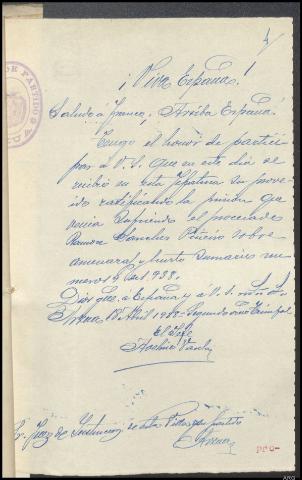 ¡Viva España!
Saludo á Franco, Arriba España!
Tengo el honor de partici
par á V.S. que en este dia se
recibió en esta Jefatura su prove
ido ratificando la prisión que
venia sufriendo el procesado
Ramon Sanchez Piñeiro sobre
amenazas y hurto sumarios nu
meros 4 1938.
Dios gue. á España y á V.S. m
Abril 1938 - Segundo año Triunfal
El Jefe
Sr. Juez de Instrucción de esta Villa y su partido
DE PARTIDO
pro-